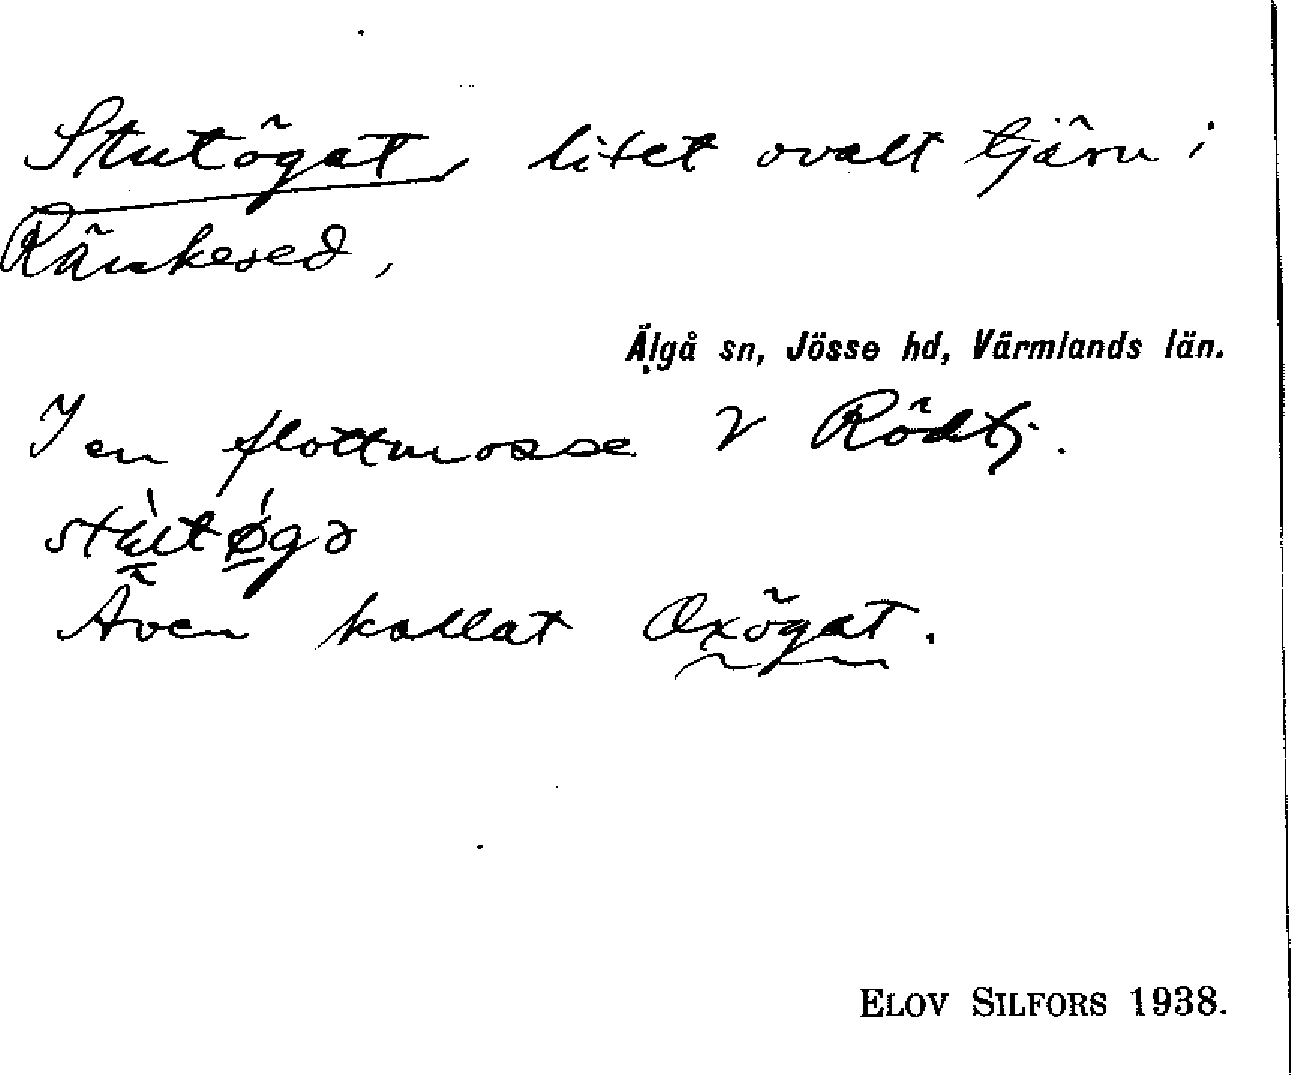 Stutögat, litet ovalt tjärn i
Ränkesed,
Älgå sn, Jösse hd, Värmlands län.
I en flottmosse V Rödtj.
Även kallat Oxögat.
ELOV SILFORS 1938.